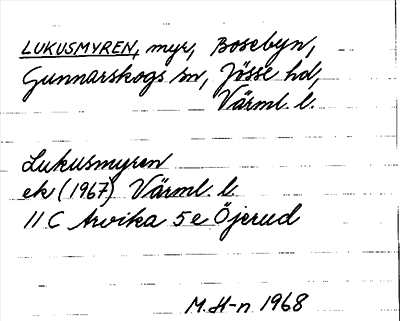 LUKUSMYREN, myr, Bosebyn,
Gunnarskogs sn, Jösse hd,
Värml. l.
Lukusmyren
ek (1967) Värml. l.
11 C Arvika 5 e Öjerud
M. H-n 1968